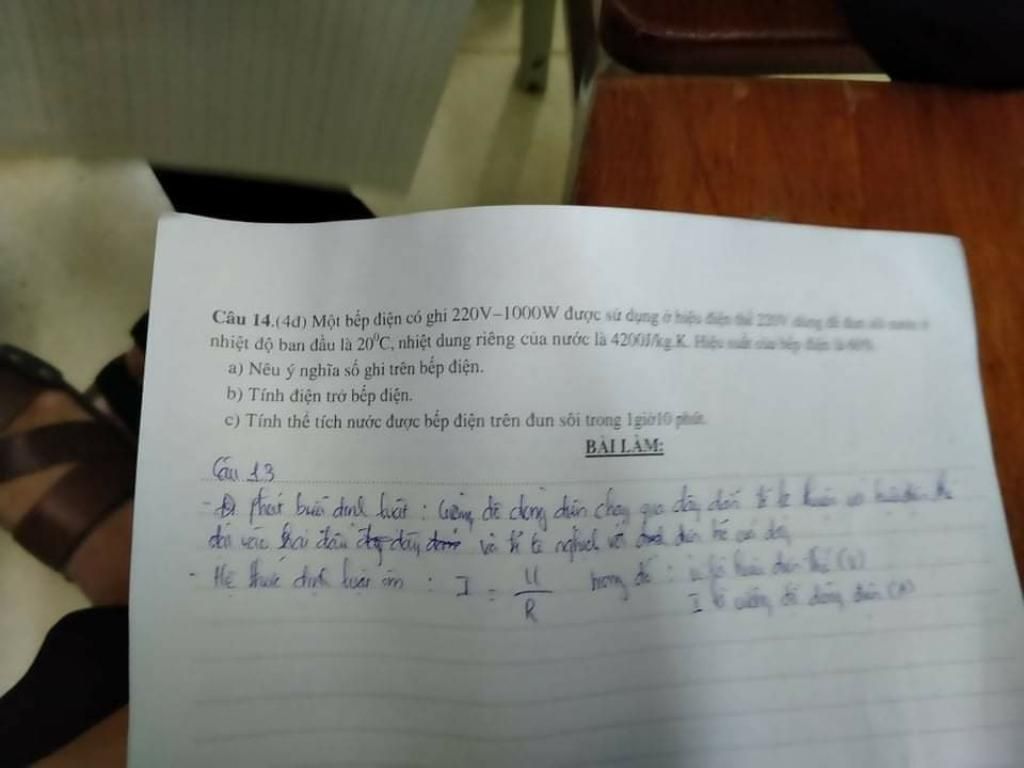 Câu 14.(4đ) Một bếp điện có ghi 220V–1000W được sử dụng ở hiệu điện thế 220V dùng để đun sôi nước ở
nhiệt độ ban đầu là 20⁰C, nhiệt dung riêng của nước là 4200J/kg.K. Hiệu suất của bếp điện là
a) Nêu ý nghĩa số ghi trên bếp điện.
b) Tính điện trở bếp điện.
c) Tính thể tích nước được bếp điện trên đun sôi trong 1giờ10 phút.
BÀI LÀM:
Câu 13
- phát biểu định luật : Cường độ dòng điện chạy qua dây dẫn tỉ lệ thuận với hiệu điện thế
đặt vào hai đầu dây và tỉ lệ nghịch với điện trở của dây
- Hệ thức định luật ôm : I = U / R trong đó : U là hiệu điện thế (V)
I là cường độ dòng điện (A)